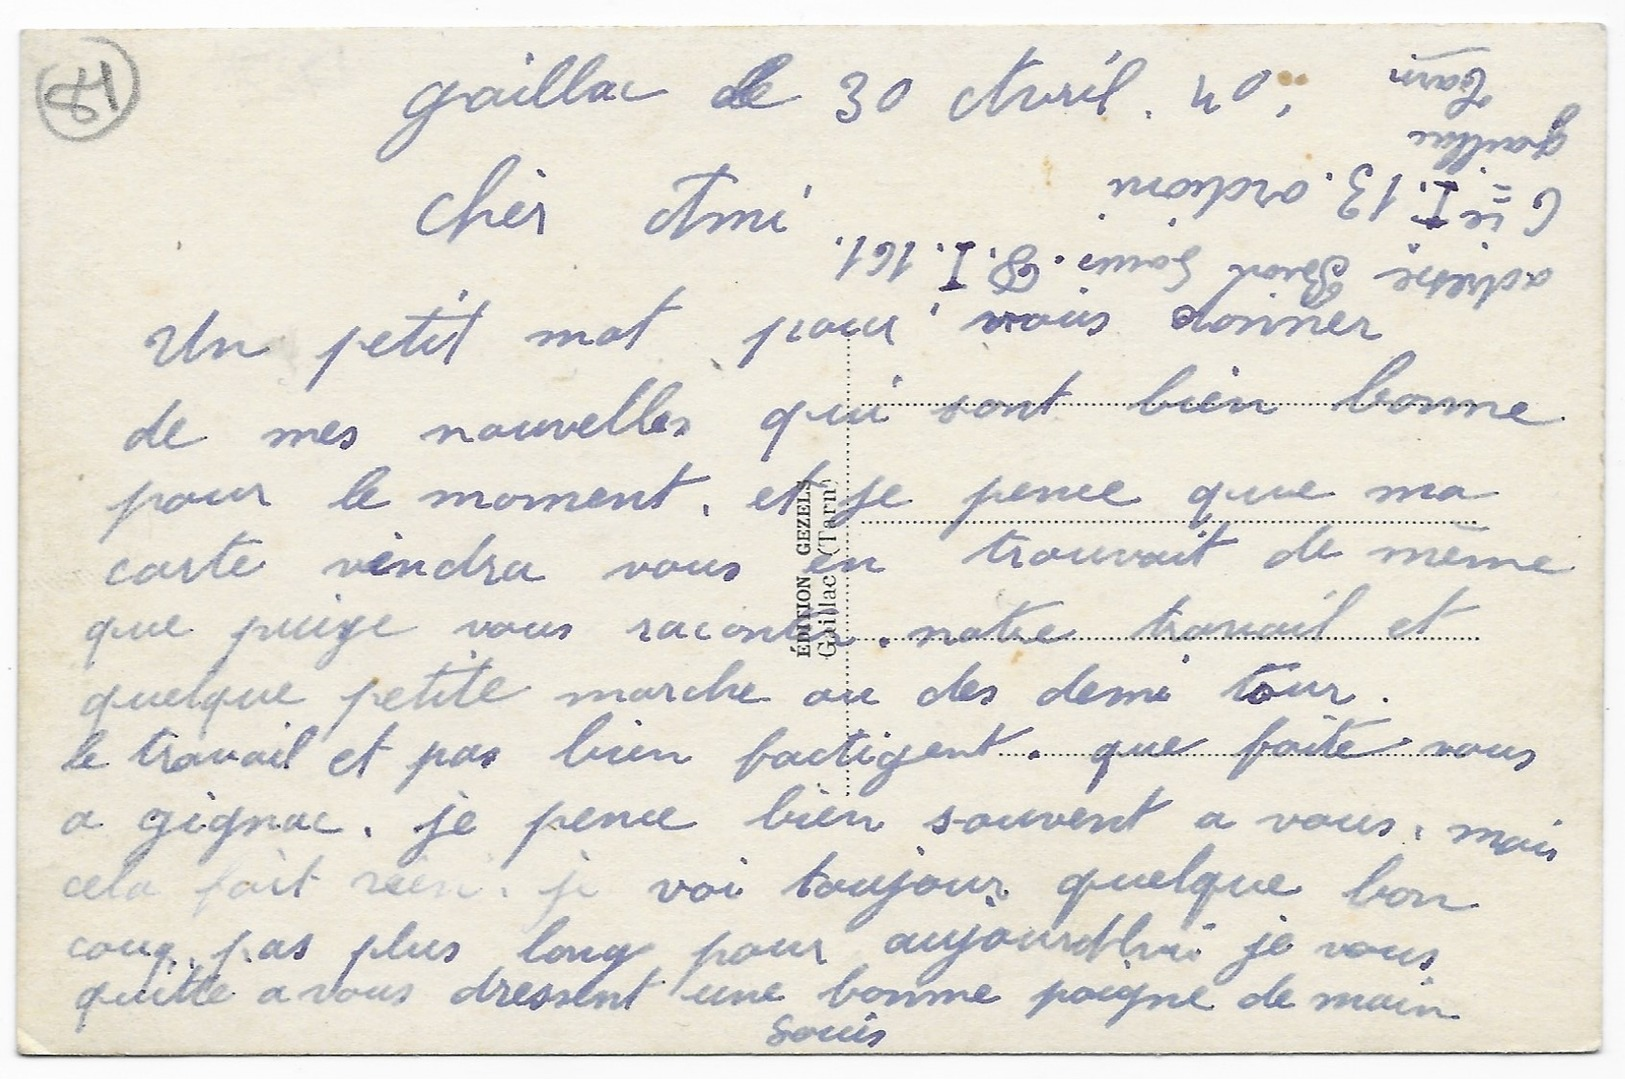 81
Gaillac le 30 Avril. 40.
Cher Ami
Un petit mot pour vous donner
de mes nouvelles qui sont bien bonne
pour le moment. et je pence que ma
carte viendra vous en trouvait de même
que puige vous raconter. notre travail et
quelque petite marche ou des demi tour.
le travail et pas bien factigent. que faite vous
a gignac. je pence bien souvent a vous. mais
cela fait rien. je voi toujour quelque bon
coup. pas plus long pour aujourdhui je vous
quitte a vous dressent une bonne poigne de main
Louis
adresse Louis. D.I. 161.
C ie I. 13. 
Gaillac
Tarn
ÉDITION GEZELS
Gaillac (Tarn)